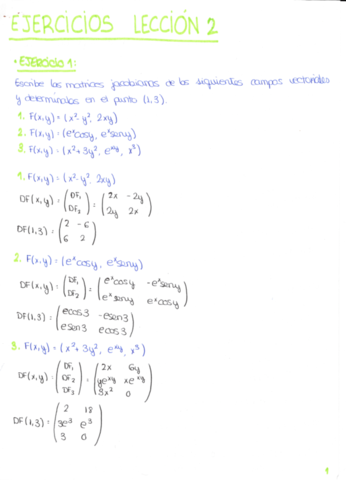 EJERCICIOS LECCIÓN 2
• EJERCICIO 1:
Escribe las matrices jacobianas de los siguientes campos vectoriales
y determínalos en el punto (1,3).
1. F(x,y) = (x²-y², 2xy)
2. F(x,y) = (eˣcosy, eˣseny)
3. F(x,y) = (x²+3y², eˣʸ, x³)
1. F(x,y) = (x²-y², 2xy)
DF(x,y) = (DF₁ DF₂) = (2x -2y
2y 2x)
DF(1,3) = (2 -6
6 2)
2. F(x,y) = (eˣcosy, eˣseny)
DF(x,y) = (DF₁ DF₂) = (eˣcosy -eˣseny
eˣseny eˣcosy)
DF(1,3) = (ecos3 -esen3
esen3 ecos3)
3. F(x,y) = (x²+3y², eˣʸ, x³)
DF(x,y) = (DF₁ DF₂ DF₃) = (2x 6y
yeˣʸ xeˣʸ
3x² 0)
DF(1,3) = (2 18
3e³ e³
3 0)
1